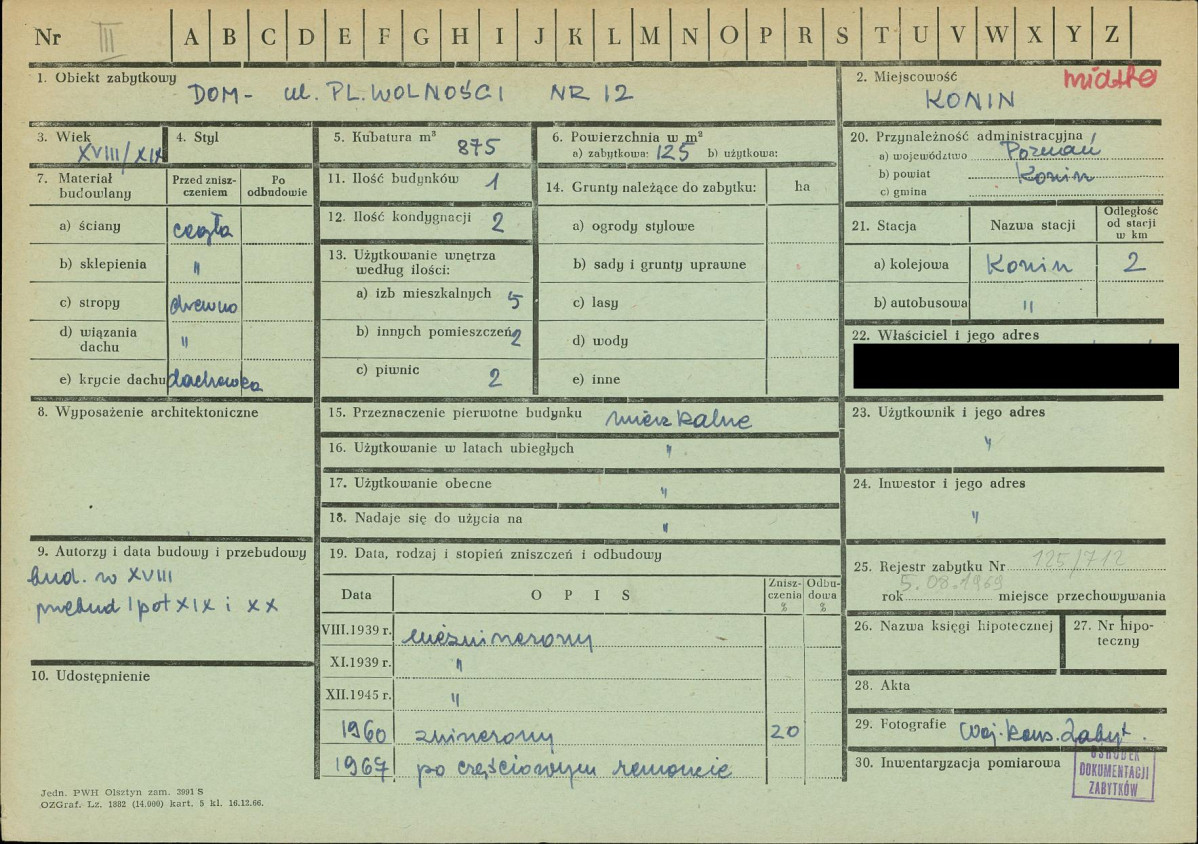 Nr III A B C D E F G H I J K L M N O P R S T U V W X Y Z
1. Obiekt zabytkowy
DOM - ul. PL. WOLNOŚCI NR 12
2. Miejscowość miasto
KONIN
3. Wiek
XVIII/XIX
4. Styl
5. Kubatura m³ 875
6. Powierzchnia w m²
a) zabytkowa: 125 b) użytkowa:
7. Materiał budowlany
Przed zniszczeniem
Po odbudowie
a) ściany cegła
b) sklepienia "
c) stropy drewno
d) wiązania dachu "
e) krycie dachu dachówka
8. Wyposażenie architektoniczne
9. Autorzy i data budowy i przebudowy
bud. w XVIII
przebud I poł XIX i XX
10. Udostępnienie
11. Ilość budynków 1
12. Ilość kondygnacji 2
13. Użytkowanie wnętrza
według ilości:
a) izb mieszkalnych 5
b) innych pomieszczeń 2
c) piwnic 2
14. Grunty należące do zabytku: ha
a) ogrody stylowe
b) sady i grunty uprawne
c) lasy
d) wody
e) inne
15. Przeznaczenie pierwotne budynku mieszkalne
16. Użytkowanie w latach ubiegłych "
17. Użytkowanie obecne "
18. Nadaje się do użycia na "
19. Data, rodzaj i stopień zniszczeń i odbudowy
Data O P I S Zniszczenia % Odbudowa %
VIII.1939 r. niezniszczony
XI.1939 r. "
XII.1945 r. "
1960 zniszczony 20
1967 po częściowym remoncie
20. Przynależność administracyjna
a) województwo Poznań
b) powiat Konin
c) gmina
21. Stacja Nazwa stacji Odległość od stacji w km
a) kolejowa Konin 2
b) autobusowa "
22. Właściciel i jego adres
23. Użytkownik i jego adres
"
24. Inwestor i jego adres
"
25. Rejestr zabytku Nr 125/712
rok 5.08.1969 miejsce przechowywania
26. Nazwa księgi hipotecznej
27. Nr hipoteczny
28. Akta
29. Fotografie Woj. Kons. Zabyt.
30. Inwentaryzacja pomiarowa
OŚRODEK
DOKUMENTACJI
ZABYTKÓW
Jedn. PWH Olsztyn zam. 3991 S
OZGraf. Lz. 1882 (14.000) kart. 5 kl. 16.12.66.